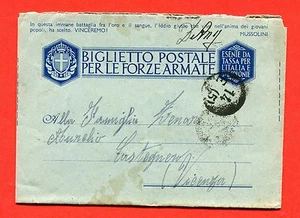 In questa immane battaglia fra l'oro e il sangue, l'Iddio giusto che vive nell'anima dei giovani
popoli, ha scelto. VINCEREMO!
MUSSOLINI
BIGLIETTO POSTALE
PER LE FORZE ARMATE
ESENTE DA
TASSA PER
L'ITALIA E
Alla Famiglia
Aurelio
Castegnero
(Vicenza)